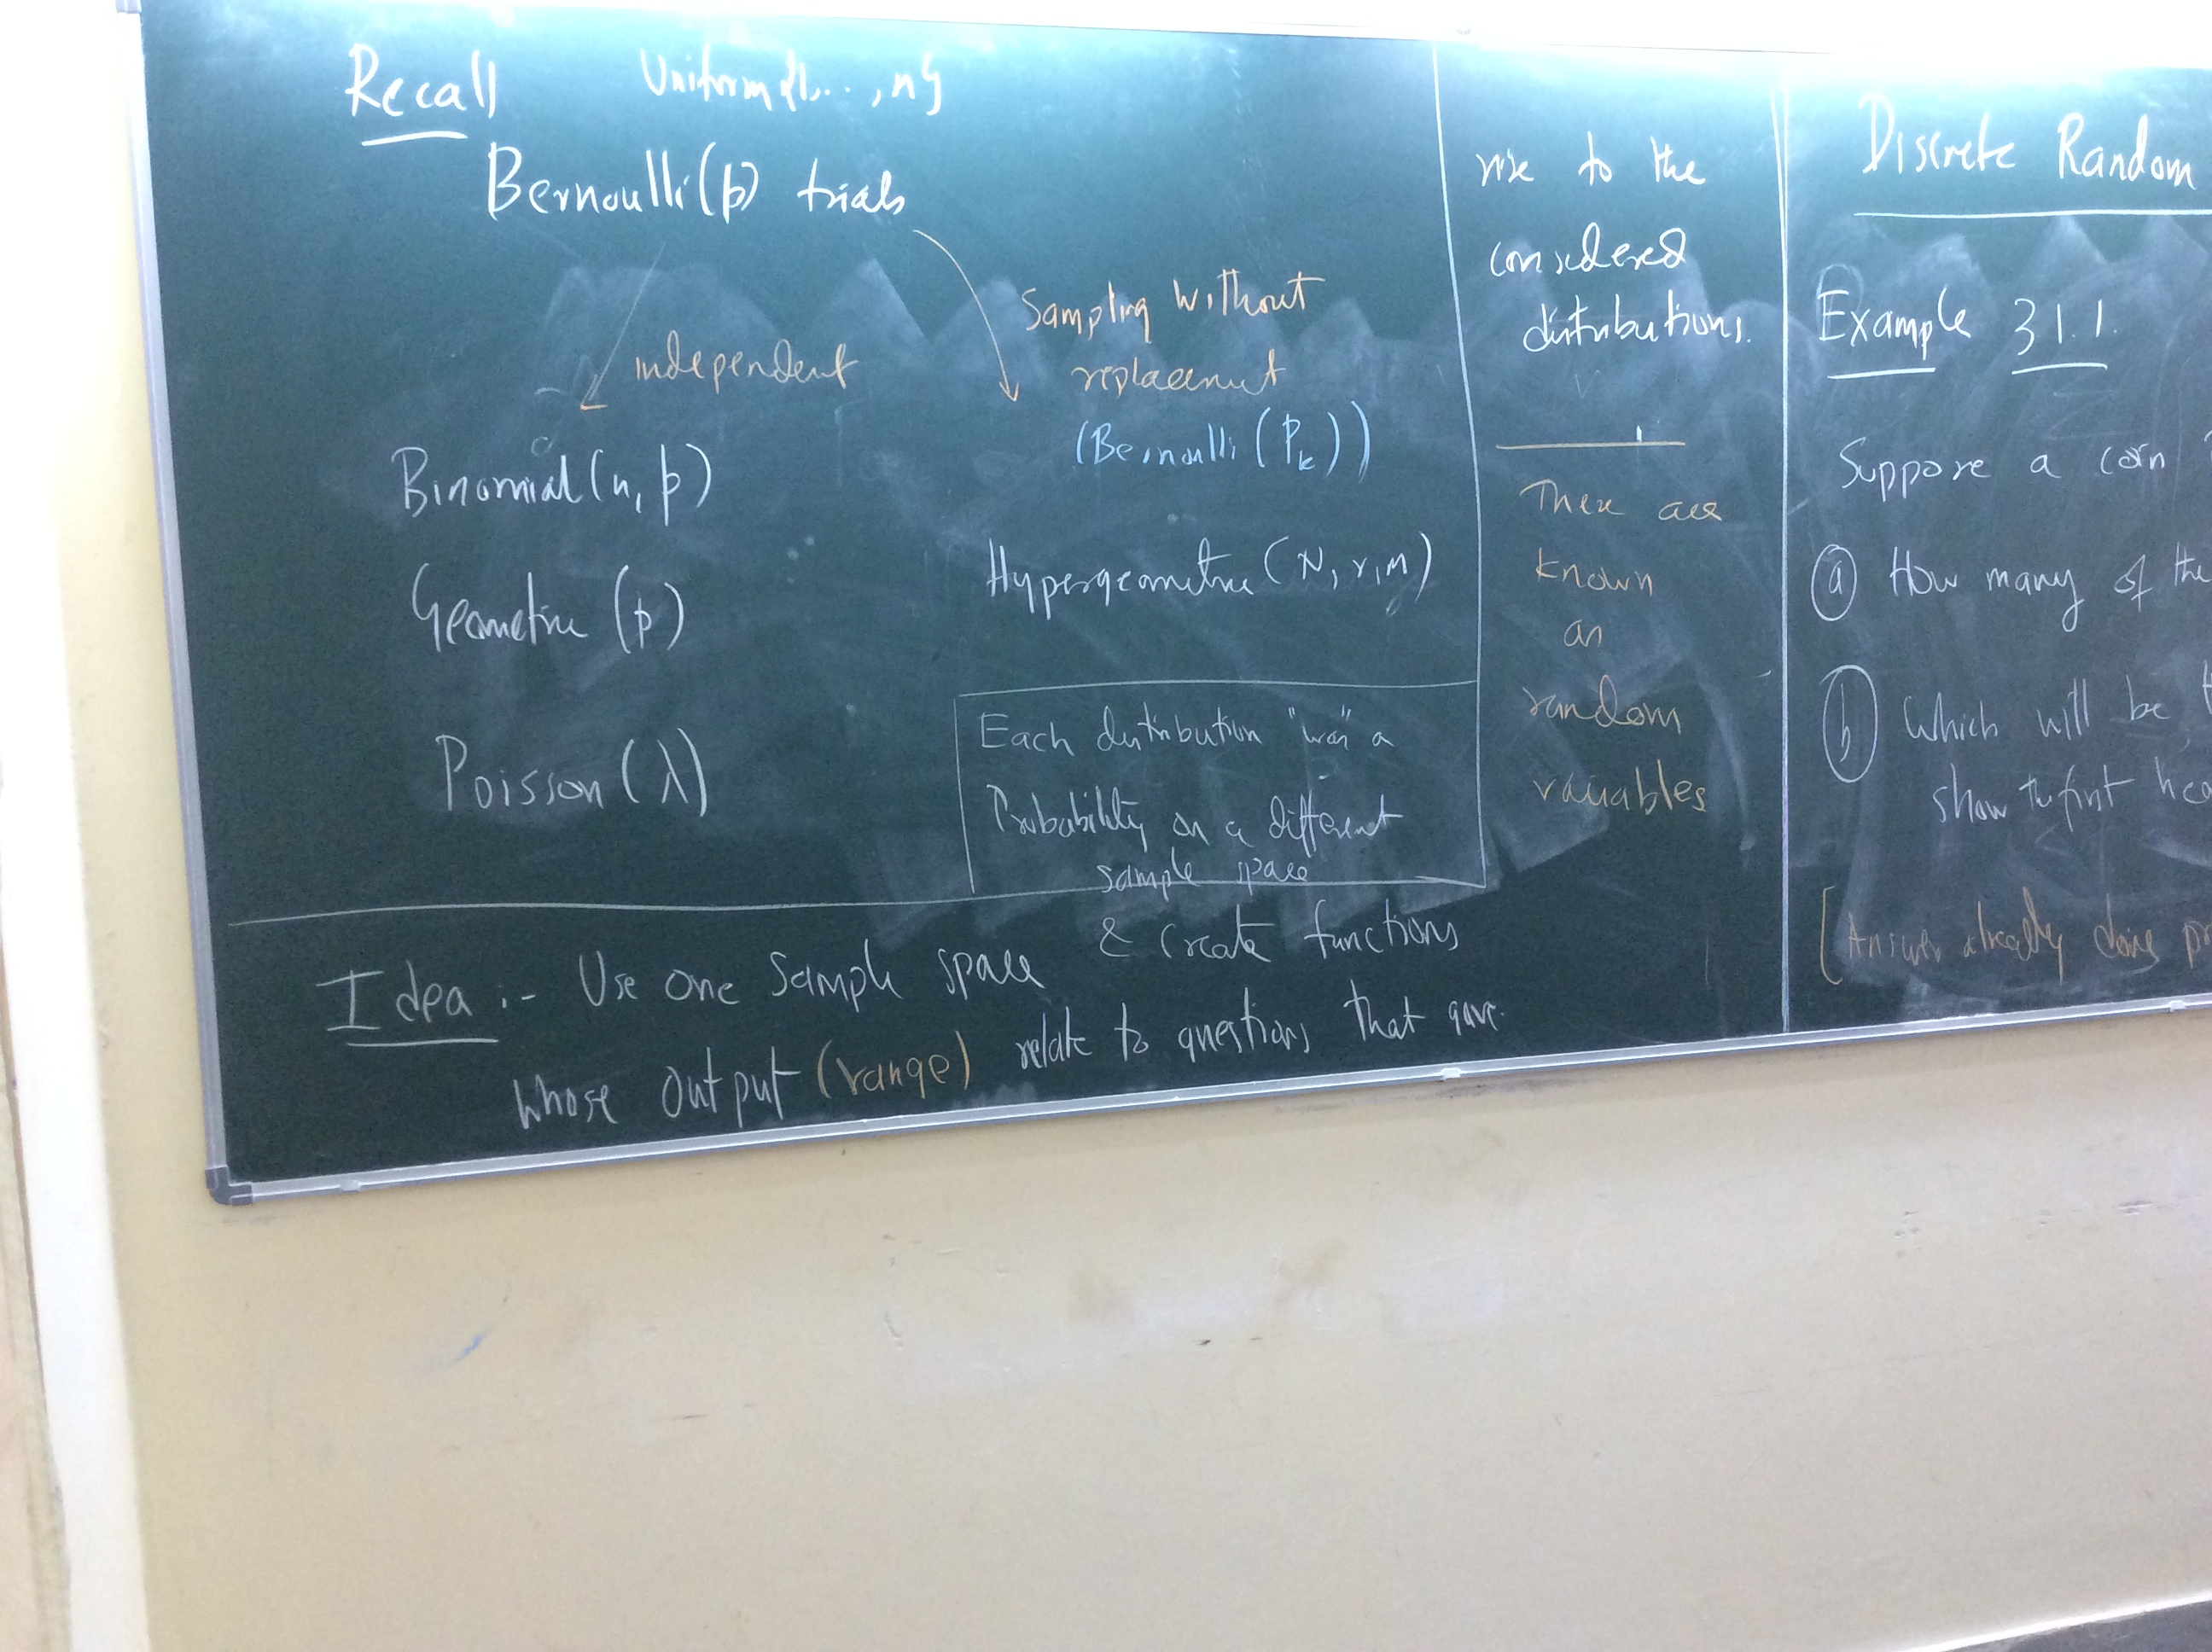 Recall Uniform{1,...,n}
Bernoulli(p) trials
independent
Sampling without
replacement
(Bernoulli (Pk))
Binomial(n, p)
Geometric (p)
Poisson(λ)
Hypergeometric (N, r, m)
Each distribution "was" a
Probability on a different
sample space
Idea :- Use one Sample space & create functions
whose output (range) relate to questions that gave
rise to the
considered
distributions.
These are
known
as
random
variables
Discrete Random
Example 3.1.1.
Suppose a coin
(a) How many of the
(b) Which will be
show the first
[Answer already done